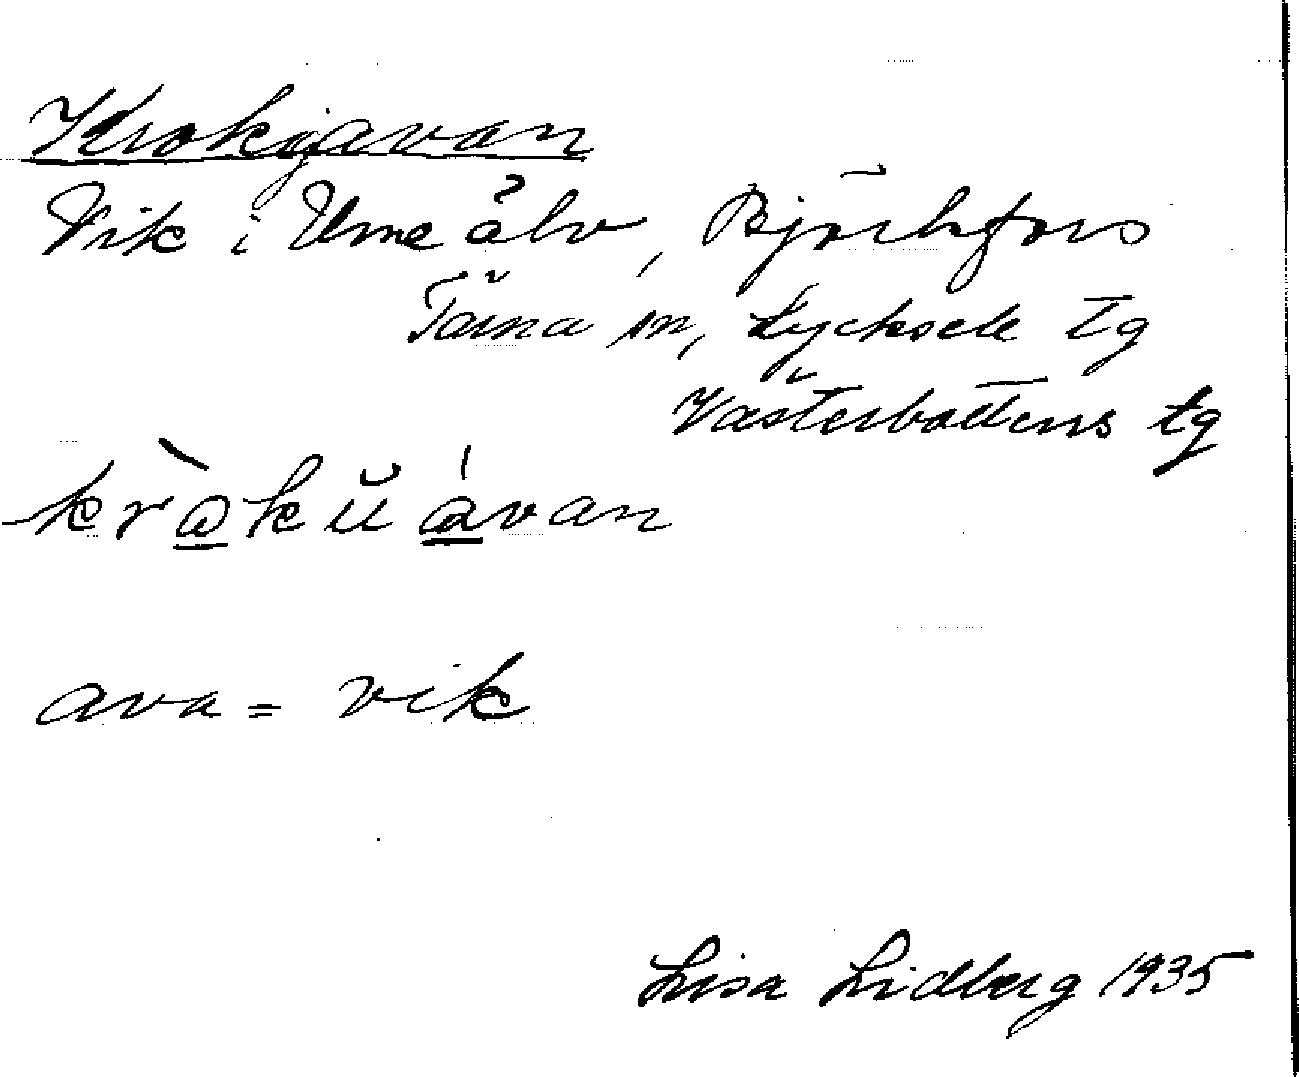 Krokjavan
Vik i Ume älv, Björkfors
Tärna sn, Lycksele tg
Västerbottens tg
kràkŭ ávan
ava = vik
Lisa Lidberg 1935